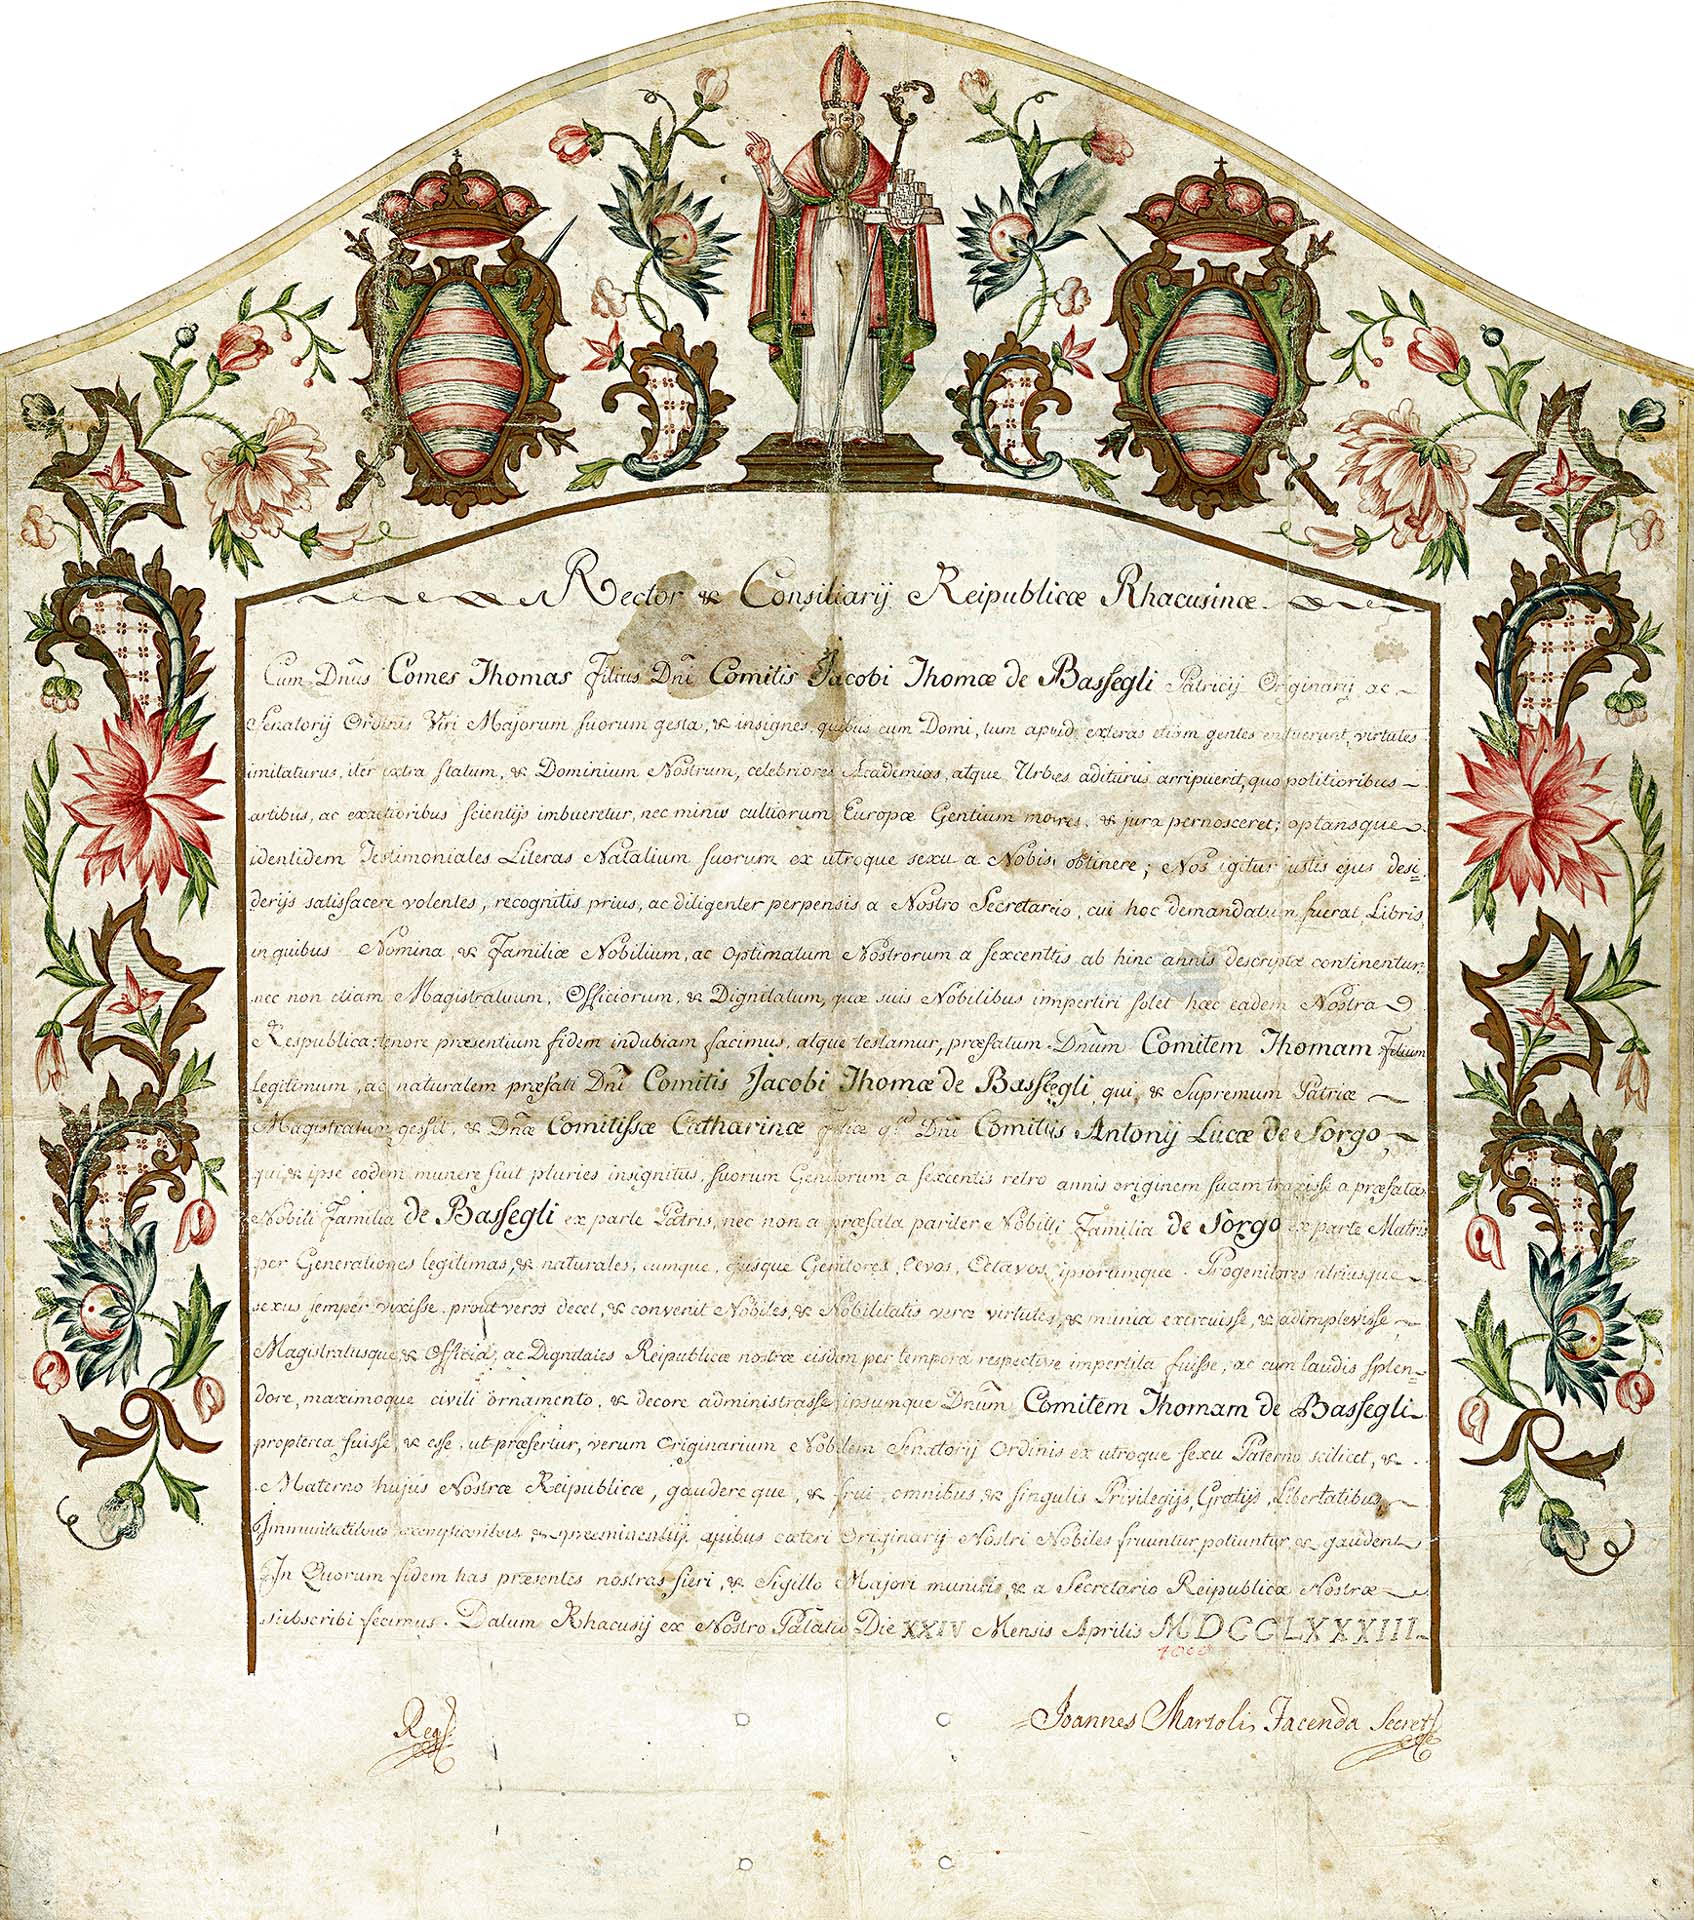 Rector & Consiliarij Reipublicæ Rhacusinæ
Cum Dn̄us Comes Thomas Filius Dn̄i Comitis Jacobi Thomæ de Bassegli Patricij Originarij ac
Senatorij Ordinis Viri Majorum suorum gesta, & insignes, quibus cum Domi, tum apud exteras etiam gentes enituerunt, virtutes
imitaturus, iter extra statum, & Dominium Nostrum, celebriores Academias, atque Urbes aditurus arripuerit, quo politioribus
artibus, ac exactioribus scientijs imbueretur, nec minus cultiorum Europæ Gentium mores, & jura pernosceret; optansque
identidem Testimoniales Literas Natalium suorum ex utroque sexu a Nobis obtinere; Nos igitur justis ejus desi=
derijs satisfacere volentes, recognitis prius, ac diligenter perpensis a Nostro Secretario, cui hoc demandatum fuerat, Libris,
in quibus Nomina, & Familiæ Nobilium, ac Optimatum Nostrorum a sexcentis ab hinc annis descriptæ continentur,
nec non etiam Magistratuum, Officiorum, & Dignitatum, quæ suis Nobilibus impertiri solet hæc eadem Nostra
Respublica: tenore præsentium fidem indubiam facimus, atque testamur, præfatum Dn̄um Comitem Thomam Filium
legitimum, ac naturalem præfati Dn̄i Comitis Jacobi Thomæ de Bassegli, qui, & Supremum Patriæ
Magistratum gessit, & Dn̄æ Comitissæ Catharinæ filiæ qm̄ Dn̄i Comitis Antonij Lucæ de Sorgo,
qui, & ipse eodem munere fuit pluries insignitus, suorum Genitorum a sexcentis retro annis originem suam traxisse a præfata
Nobili Familia de Bassegli ex parte Patris, nec non a præfata pariter Nobili Familia de Sorgo ex parte Matris
per Generationes legitimas, & naturales, eumque, ejusque Genitores, Avos, Atavos, ipsorumque Progenitores utriusque
sexus semper vixisse, prout veros decet, & convenit Nobiles, & Nobilitatis veræ virtutes, & munia exercuisse, & adimplevisse,
Magistratusque, & Officia, ac Dignitates Reipublicæ nostræ eisdem per tempora respective impertita fuisse, ac cum laudis splen=
dore, maximoque civili ornamento, & decore administrasse, ipsumque Dn̄um Comitem Thomam de Bassegli
propterea fuisse, & esse, ut præfertur, verum Originarium Nobilem Senatorij Ordinis ex utroque sexu Paterno scilicet, &
Materno hujus Nostræ Reipublicæ, gaudereque, & frui omnibus, & singulis Privilegijs, Gratijs, Libertatibus,
Immunitatibus exemptionibus, & præeminentijs, quibus cæteri Originarij Nostri Nobiles fruuntur, potiuntur, & gaudent
In Quorum fidem has præsentes nostras fieri, & Sigillo Majori muniri, & a Secretario Reipublicæ Nostræ
subscribi fecimus. Datum Rhacusij ex Nostro Palatio Die XXIV Mensis Aprilis MDCCLXXXIII
Joannes Martoli Facenda Secret